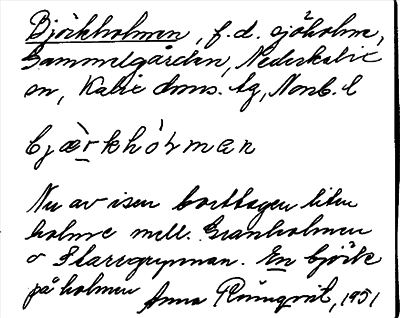 Björkholmen, f.d. sjöholme,
Gammelgården, Nederkalix
sn, Kalix doms. tg, Norrb. l
bjæ̀rkhɔ́ɫmen
Nu av isen borttagen liten
holme mell. Granholmen
o Flaregrynnan. En björk
på holmen Anna Rönnqvist, 1951